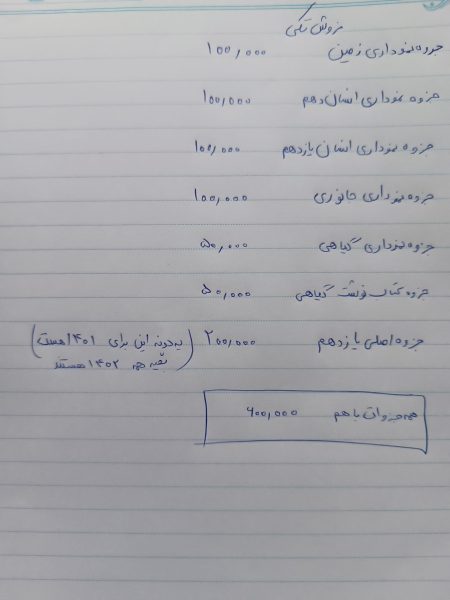 فروش تکی
جزوه نموداری زمین ۱۰۰,۰۰۰
جزوه نموداری انسان دهم ۱۰۰,۰۰۰
جزوه نموداری انسان یازدهم ۱۰۰,۰۰۰
جزوه نموداری جانوری ۱۰۰,۰۰۰
جزوه نموداری گیاهی ۵۰,۰۰۰
جزوه کتاب نوشت گیاهی ۵۰,۰۰۰
جزوه اصلی یازدهم ۲۰۰,۰۰۰ (یه دونه این برای ۱۴۰۱ هست
بقیه همه ۱۴۰۲ هستند)
همه جزوات با هم ۶۰۰,۰۰۰